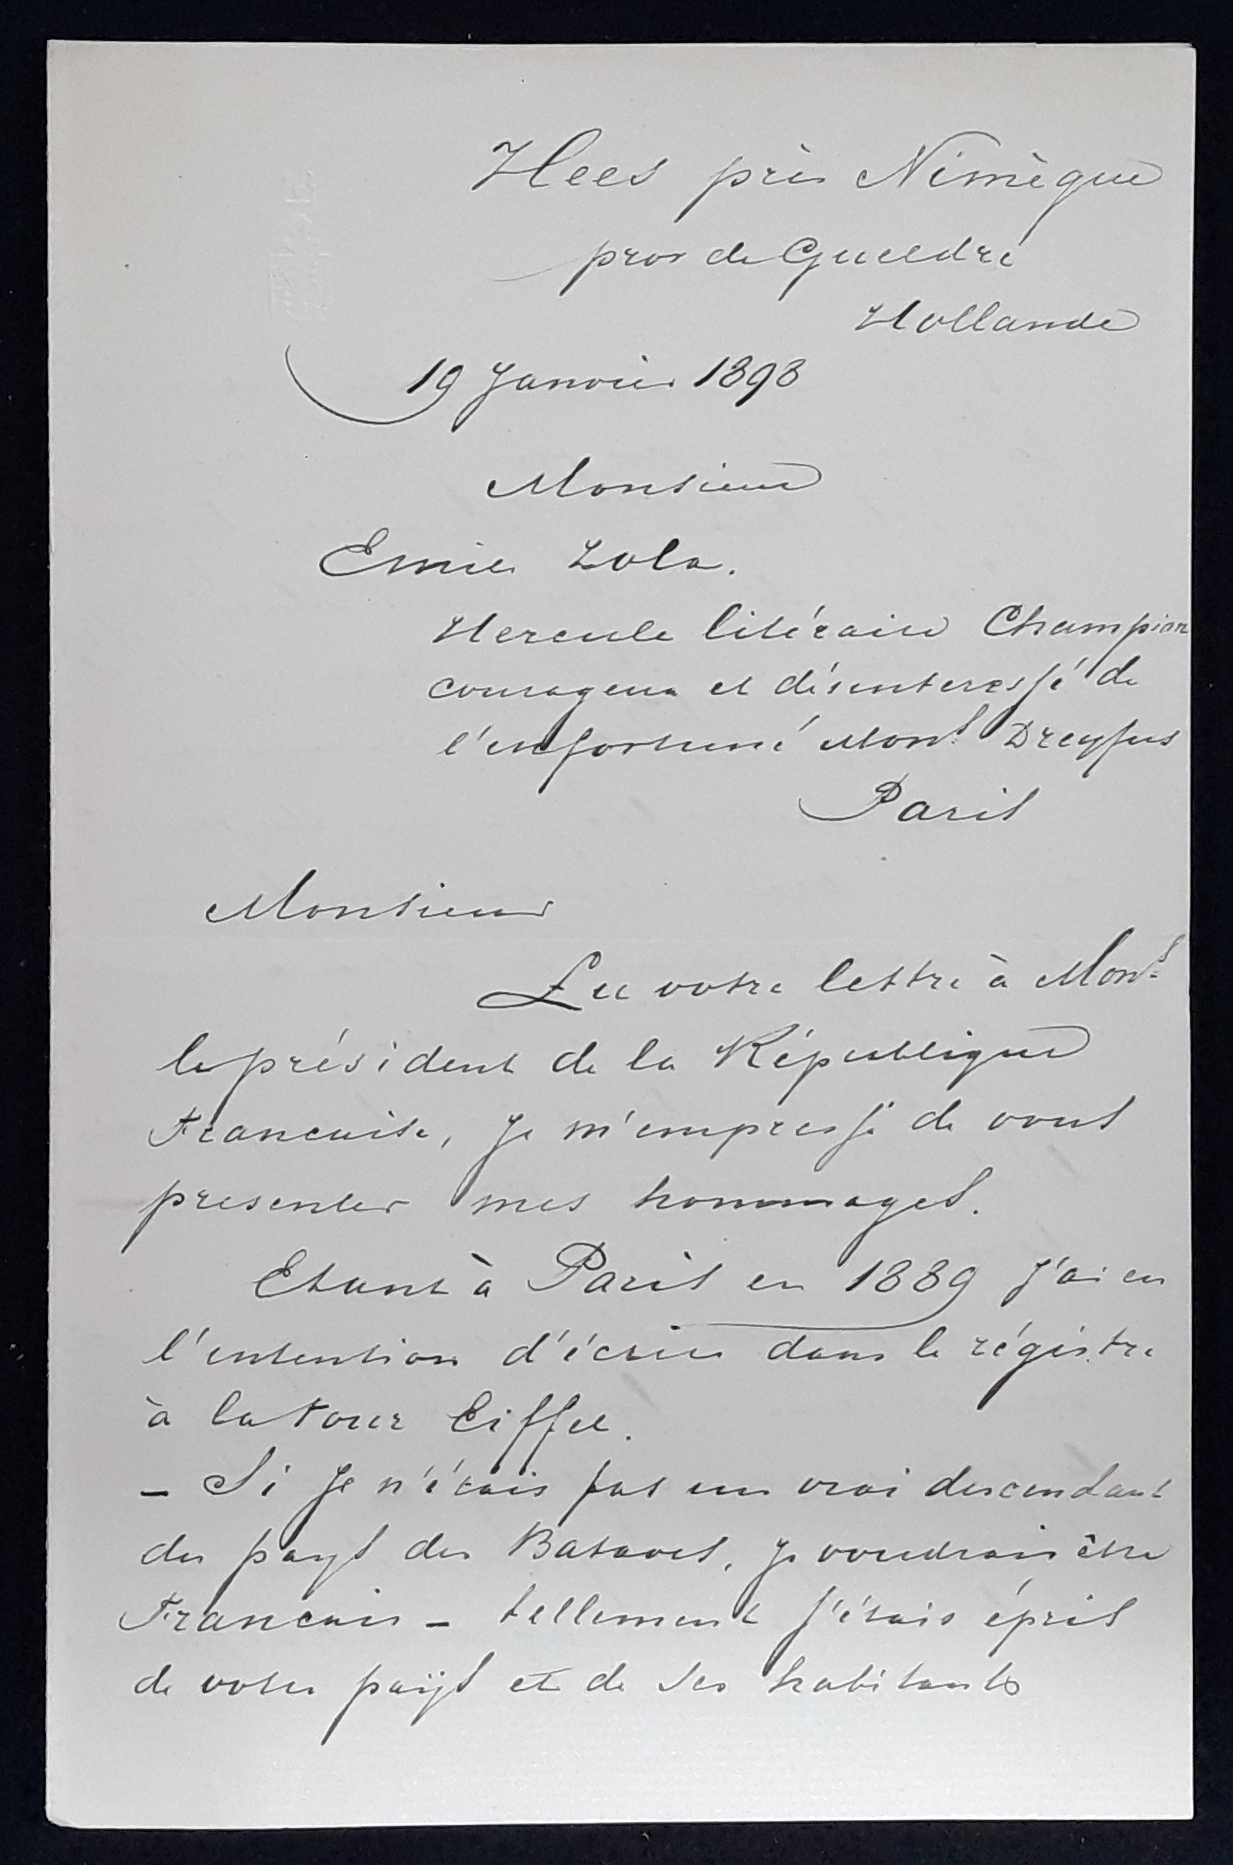 Hees près Nimègue
prov de Gueldre
Hollande
19 Janvier 1898
Monsieur
Emile Zola.
Hercule litéraire Champion
courageux et désinteressé de
l'infortuné Mons. Dreyfus
Paris
Monsieur
Lu votre lettre à Mons.
le président de la République
Francaise, je m'empresse de vous
presenter mes hommages.
Etant à Paris en 1889 j'ai eu
l'intention d'écrire dans le régistre
à la tour Eiffel.
– Si je n'étais pas un vrai descendant
du pays des Bataves, je voudrais être
Francais – tellement j'étais épris
de votre paÿs et de ses habitants